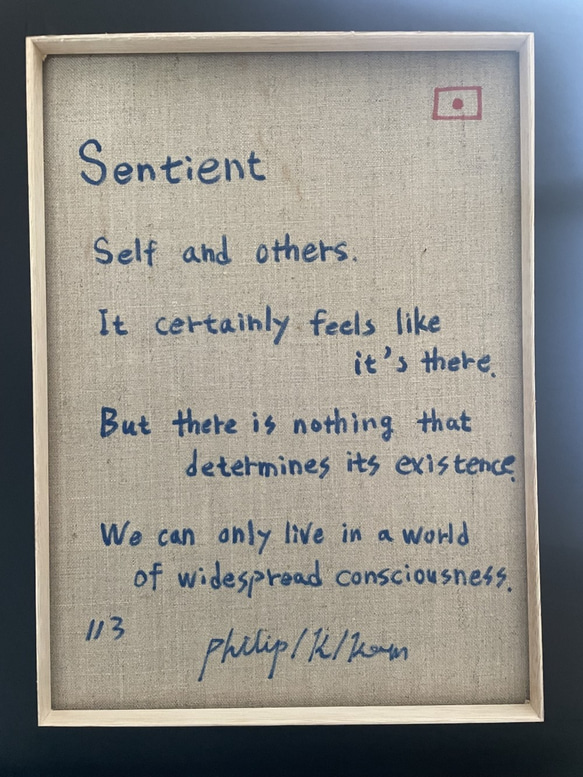 Sentient
Self and others.
It certainly feels like
it's there.
But there is nothing that
determines its existence.
We can only live in a world
of widespread consciousness.
113
philip/k/